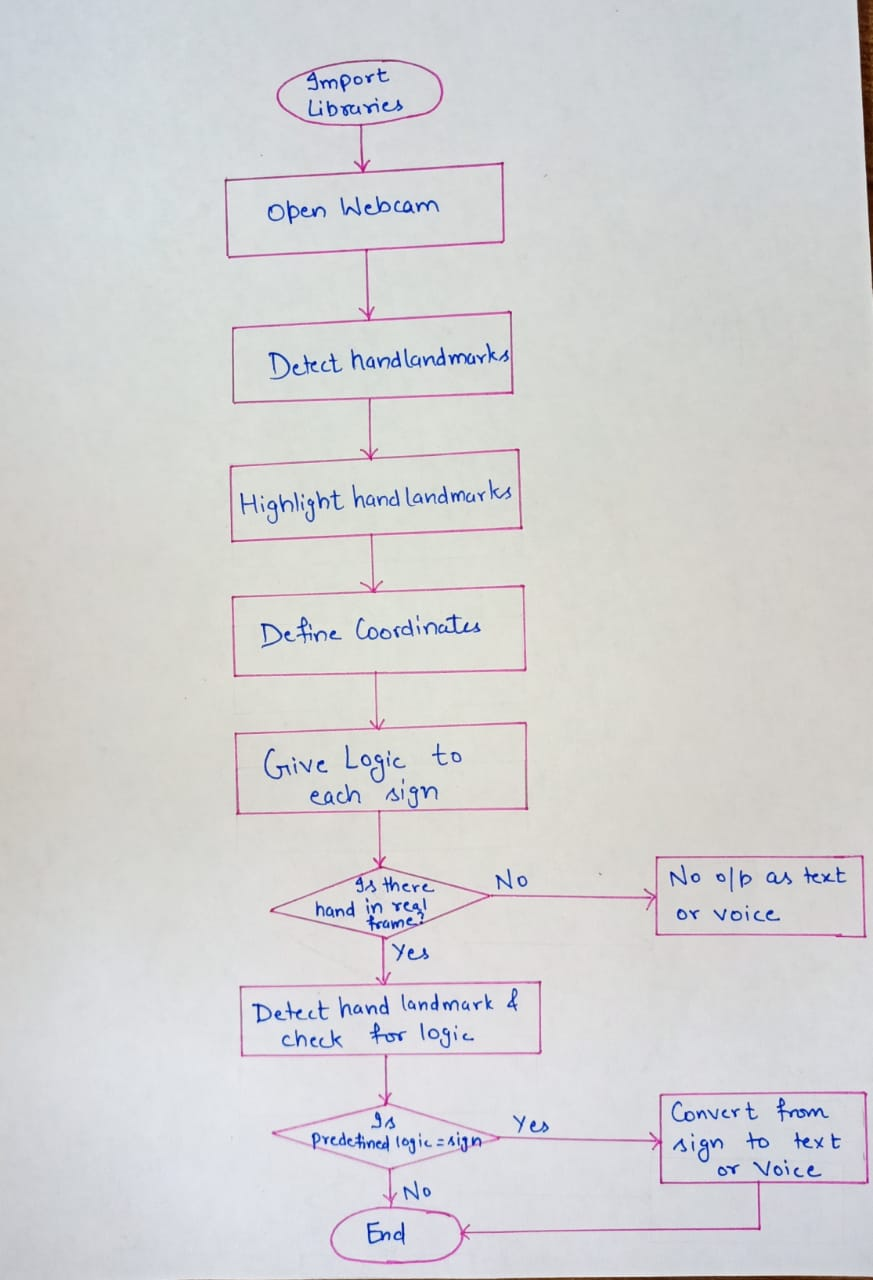 Import
Libraries
Open Webcam
Detect handlandmarks
Highlight hand landmarks
Define Coordinates
Give Logic to
each sign
Is there
hand in real
frame?
No
No o/p as text
or voice
Yes
Detect hand landmark &
check for logic
Is
Predefined logic = sign
Yes
Convert from
sign to text
or Voice
No
End